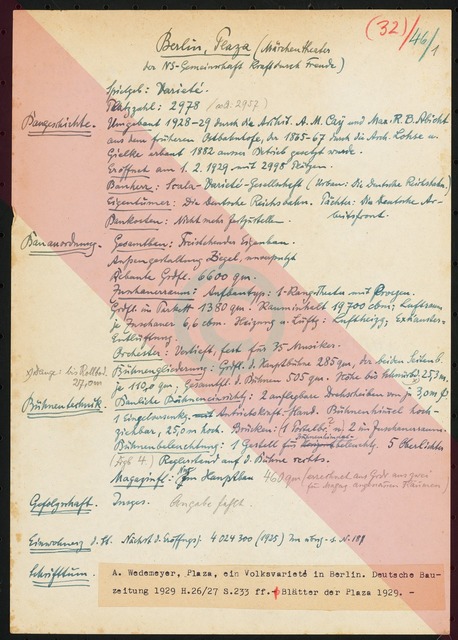 (32)/46/1
Berlin, Plaza (Märchentheater
der NS-Gemeinschaft Kraft durch Freude)
Spielgeb: Varieté.
Platzzahl: 2978 (od. 2957)
Baugeschichte. Umgebaut 1928-29 durch die Archit. A. M. Cay und Max. R. B. Abicht
aus dem früheren Ostbahnhofe, der 1865-67 durch die Arch. Lohse u.
erbaut 1882 ausser Betrieb gesetzt wurde.
Eröffnet am 1. 2. 1929 mit 2998 Plätzen.
Bauherr: Scala-Varieté-Gesellschaft (Urban: Die Deutsche Reichsbahn.)
Eigentümer: Die Deutsche Reichsbahn. Pächter: Die Deutsche Ar-
beitsfront.
Baukosten: Nicht mehr festzustellen.
Bauanordnung. Gesamtbau: Freistehender Eigenbau.
Aussengestaltung Ziegel, unverputzt
Bebaute Grdfl. 6600 qm.
Zuschauerraum: Aufbautyp: 1-Rangtheater mit Logen.
Grdfl. im Parkett 1380 qm. Rauminhalt 19,700 cbm; Luftraum
je Zuschauer 6,6 cbm. Heizung u. Lüftg: Luftheizg; Exhaustor-
Entlüftung.
Orchester: Vertieft, fest für 35 Musiker.
Bühnengliederung: Grdfl. d. Hauptbühne 285 qm, der beiden Seitenb.
je 110,0 qm; Gesamtfl. d. Bühnen 505 qm. Höhe bis 25,3 m.
x) bis Rollbd.
27,0 m
Bühnentechnik. Bauliche Bühneneinrichtg: 2 auflegbare Drehscheiben von je 3,0 m
1 Antriebskraft-Hand. Bühnenhimmel hoch-
ziehbar, 25,0 m hoch. Brücken: 1 u) 2 im Zuschauerraum.
Bühnenbeleuchtung: 1 Gestell für beleuchtg. 5 Oberlichter
4) Reglerstand auf d. Bühne rechts.
Magazinfl: Im Hauptbau 460 qm (errechnet aus
für
Gefolgschaft. Insges. Angabe fehlt.
Einwohnerz. d. St. Nächst d. Eröffngsj. 4 024 300 (1925) Im übrig. s. N. 188
Schrifttum. A. Wedemeyer, Plaza, ein Volksvarieté in Berlin. Deutsche Bau-
zeitung 1929 H.26/27 S.233 ff. Blätter der Plaza 1929. -